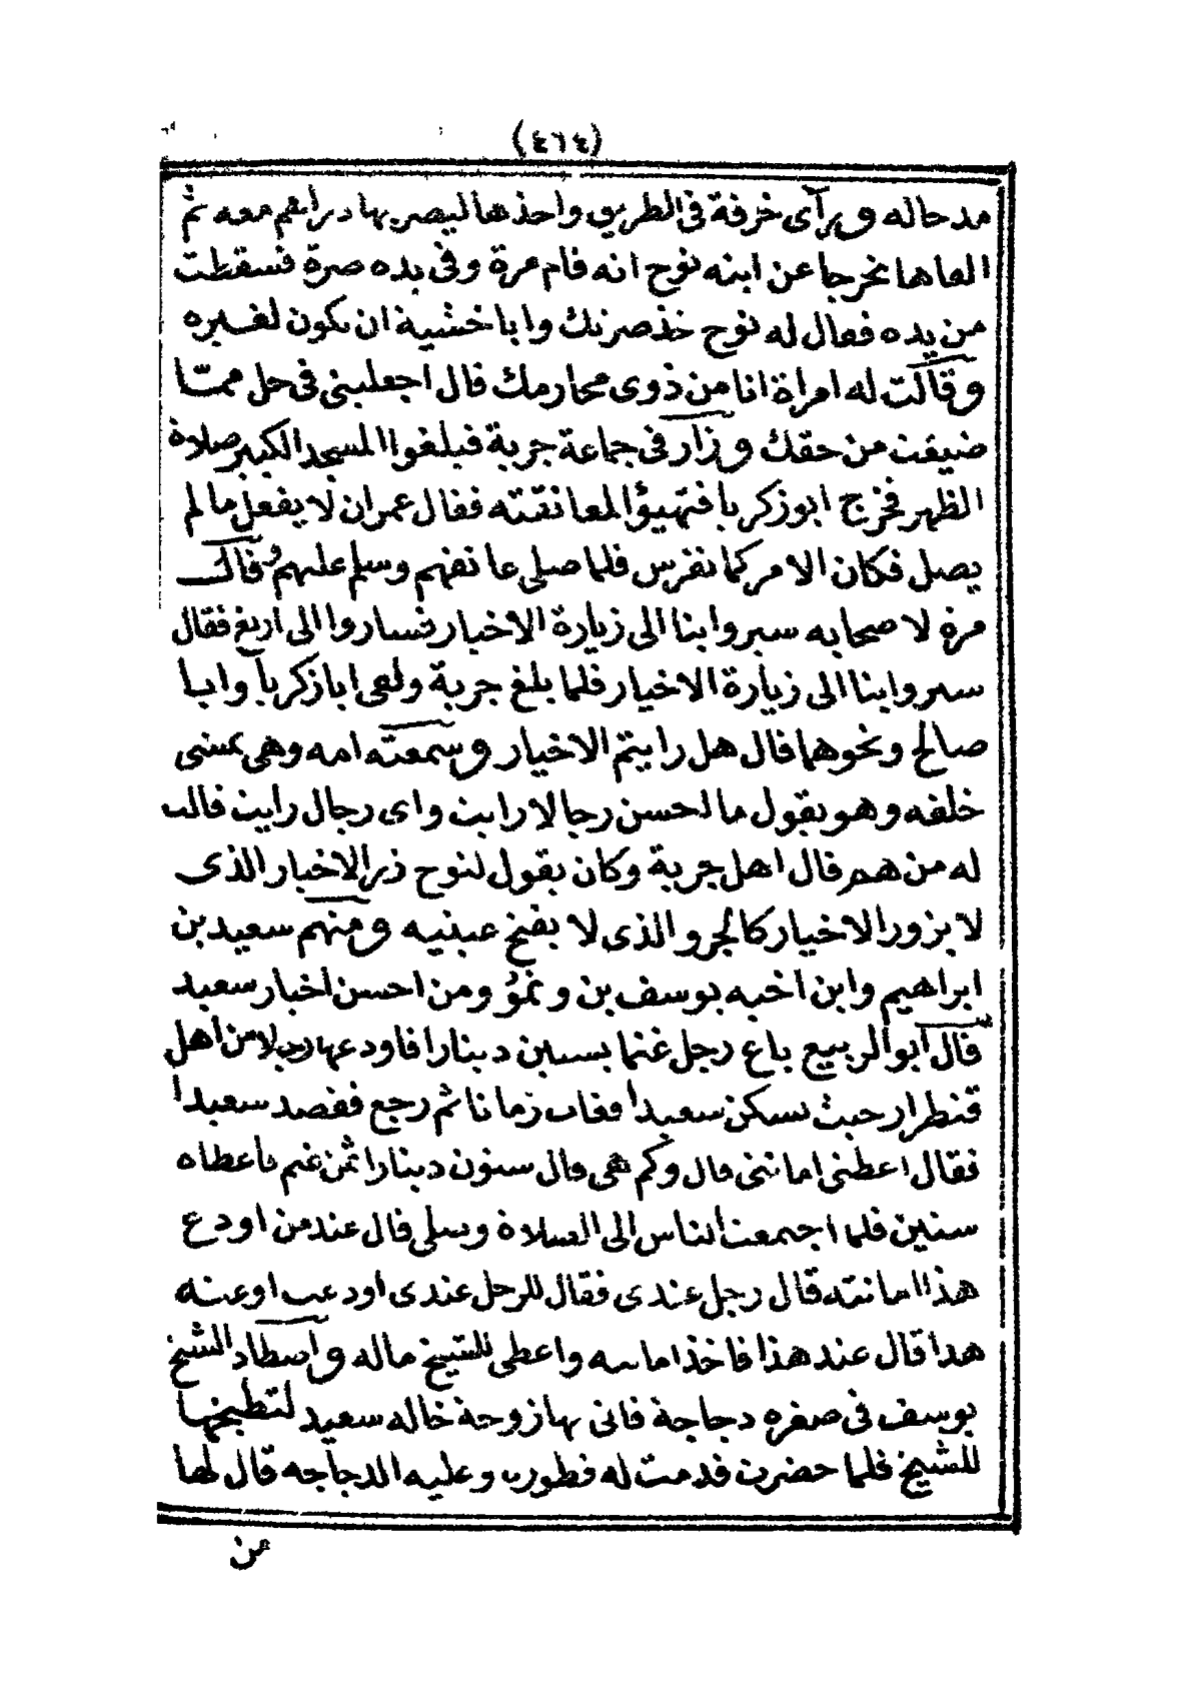 (٤٦٤)
مد حاله ورآى خرقة فى الطريق واخذها ليصر بها دراهم معه ثم
القاها تحرجا عن ابنه نوح انه قام مرة وفى يده صرة فسقطت
من يده فقال له نوح خذ صرتك وابا خشية ان يكون لغيره
وقالت له امراة انا من ذوى محارمك قال اجعلينى فى حل ممّا
ضيعت من حقك وزار فى جماعة جربة فبلغوا المسجد الكبير صلاة
الظهر فخرج ابو زكريا فتهيؤا لمعانقته فقال عمران لا يفعل مالم
يصل فكان الامر كما تفرس فلما صلى عانقهم وسلم عليهم وقالـــ
مرة لاصحابه سيروا بنا الى زيارة الاخيار فساروا الى اريغ فقال
سيروا بنا الى زيارة الاخيار فلما بلغ جربة ولقى ابا زكريا وابا
صالح ونحوهما قال هل رايتم الاخيار وسمعته امه وهى تمشى
خلفه وهو يقول ما احسن رجالا رايت واى رجال رايت قالت
له من هم قال اهل جربة وكان يقول لنوح زر الاخيار الذى
لا يزور الاخيار كالجرو الذى لا يفتح عينيه ومنهم سعيد بن
ابراهيم وابن اخيه يوسف بن ونموُ ومن احسن اخبار سعيد
قال ابو الربيع باع رجل غنما بستين دينارا فاودعها رجلا من اهل
قنطرار حيث يسكن سعيدا فغاب زمانا ثم رجع فقصد سعيدا
فقال اعطنى امانتى قال وكم هى قال ستون دينارا ثمن غنم فاعطاه
ستين فلما اجتمعت الناس الى الصلاة وصلى قال عند من اودع
هذا امانته قال رجل عندى فقال للرجل عندى اودعت او عند
هذا قال عند هذا فاخذ امانته واعطى للشيخ ماله واصطاد الشيخ
يوسف فى صغره دجاجة فاتى بها زوجة خاله سعيد لتطبخها
للشيخ فلما حضرت قدمت له فطوره وعليه الدجاجه قال لها
من